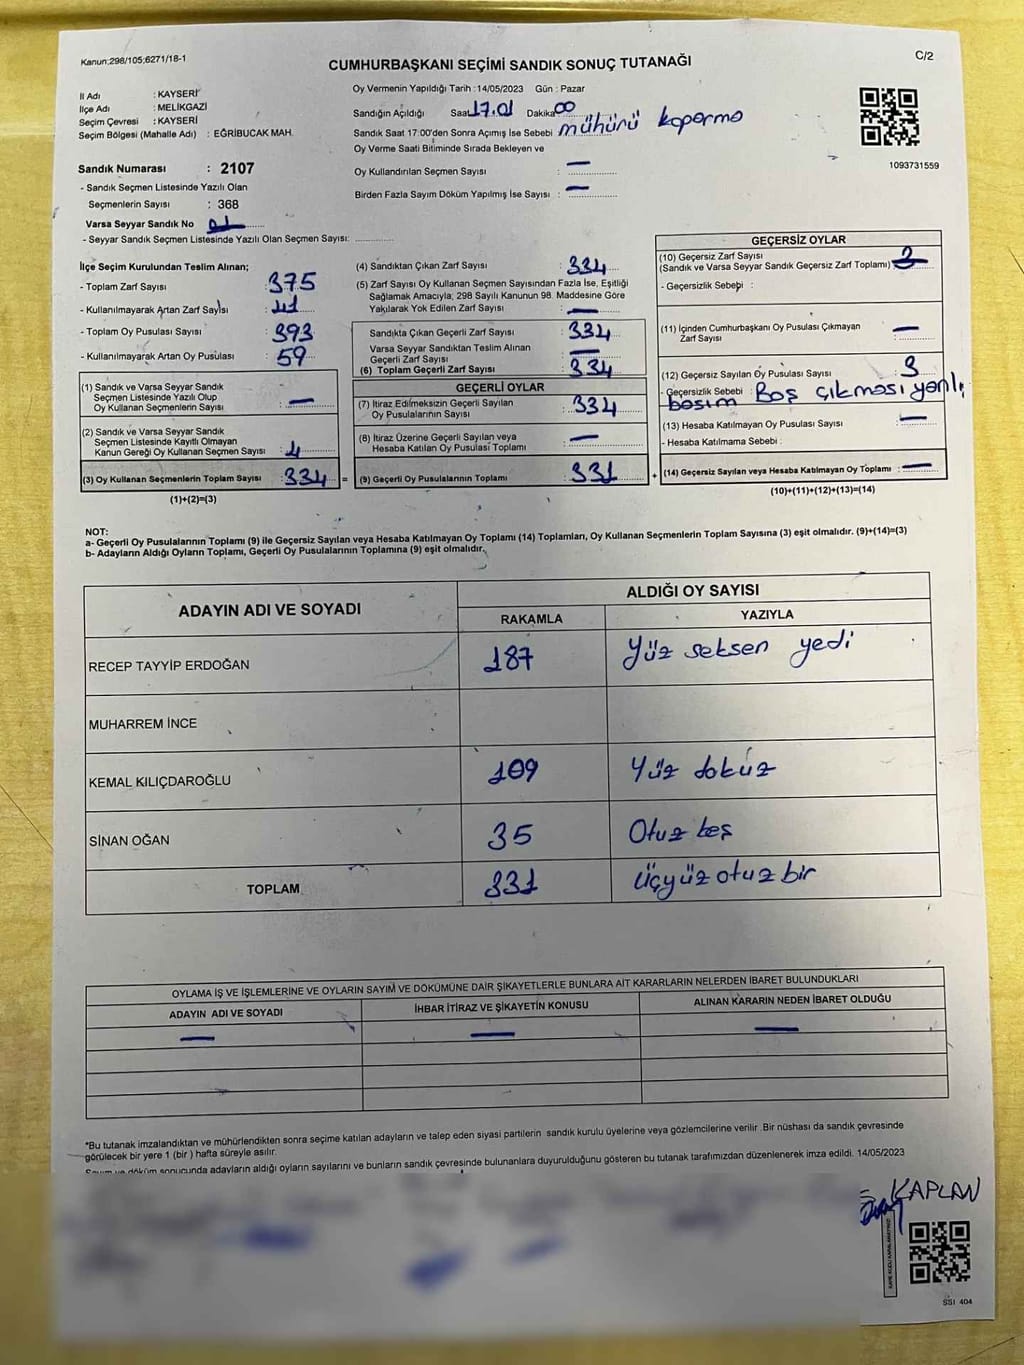 Kanun;298/105;6271/18-1
CUMHURBAŞKANI SEÇİMİ SANDIK SONUÇ TUTANAĞI
C/2
İl Adı : KAYSERİ
İlçe Adı : MELİKGAZİ
Seçim Çevresi : KAYSERİ
Seçim Bölgesi (Mahalle Adı) : EĞRİBUCAK MAH.
Oy Vermenin Yapıldığı Tarih : 14/05/2023 Gün : Pazar
Sandığın Açıldığı Saat 17.01 Dakika 00
Sandık Saat 17:00'den Sonra Açmış İse Sebebi mühürü koparma
Oy Verme Saati Bitiminde Sırada Bekleyen ve
Oy Kullandırılan Seçmen Sayısı : —
Birden Fazla Sayım Döküm Yapılmış İse Sayısı : —
1093731559
Sandık Numarası : 2107
- Sandık Seçmen Listesinde Yazılı Olan
Seçmenlerin Sayısı : 368
Varsa Seyyar Sandık No
- Seyyar Sandık Seçmen Listesinde Yazılı Olan Seçmen Sayısı:
İlçe Seçim Kurulundan Teslim Alınan;
- Toplam Zarf Sayısı : 375
- Kullanılmayarak Artan Zarf Sayısı : 41
- Toplam Oy Pusulası Sayısı : 393
- Kullanılmayarak Artan Oy Pusulası : 59
(1) Sandık ve Varsa Seyyar Sandık
Seçmen Listesinde Yazılı Olup
Oy Kullanan Seçmenlerin Sayısı : —
(2) Sandık ve Varsa Seyyar Sandık
Seçmen Listesinde Kayıtlı Olmayan
Kanun Gereği Oy Kullanan Seçmen Sayısı :
(3) Oy Kullanan Seçmenlerin Toplam Sayısı : 334 =
(1)+(2)=(3)
(4) Sandıktan Çıkan Zarf Sayısı : 334
(5) Zarf Sayısı Oy Kullanan Seçmen Sayısından Fazla İse, Eşitliği
Sağlamak Amacıyla; 298 Sayılı Kanunun 98. Maddesine Göre
Yakılarak Yok Edilen Zarf Sayısı : —
Sandıkta Çıkan Geçerli Zarf Sayısı : 334
Varsa Seyyar Sandıktan Teslim Alınan
Geçerli Zarf Sayısı : —
(6) Toplam Geçerli Zarf Sayısı : 334
GEÇERLİ OYLAR
(7) İtiraz Edilmeksizin Geçerli Sayılan
Oy Pusulalarının Sayısı : 334
(8) İtiraz Üzerine Geçerli Sayılan veya
Hesaba Katılan Oy Pusulası Toplamı : —
(9) Geçerli Oy Pusulalarının Toplamı : 331 +
GEÇERSİZ OYLAR
(10) Geçersiz Zarf Sayısı
(Sandık ve Varsa Seyyar Sandık Geçersiz Zarf Toplamı) :
- Geçersizlik Sebebi :
(11) İçinden Cumhurbaşkanı Oy Pusulası Çıkmayan
Zarf Sayısı : —
(12) Geçersiz Sayılan Oy Pusulası Sayısı : 3
- Geçersizlik Sebebi : Boş çıkması yanlış
basım
(13) Hesaba Katılmayan Oy Pusulası Sayısı : —
- Hesaba Katılmama Sebebi :
(14) Geçersiz Sayılan veya Hesaba Katılmayan Oy Toplamı : —
(10)+(11)+(12)+(13)=(14)
NOT:
a- Geçerli Oy Pusulalarının Toplamı (9) ile Geçersiz Sayılan veya Hesaba Katılmayan Oy Toplamı (14) Toplamları, Oy Kullanan Seçmenlerin Toplam Sayısına (3) eşit olmalıdır. (9)+(14)=(3)
b- Adayların Aldığı Oyların Toplamı, Geçerli Oy Pusulalarının Toplamına (9) eşit olmalıdır.
ADAYIN ADI VE SOYADI
ALDIĞI OY SAYISI
RAKAMLA YAZIYLA
RECEP TAYYİP ERDOĞAN 187 Yüz seksen yedi
MUHARREM İNCE
KEMAL KILIÇDAROĞLU 109 Yüz dokuz
SİNAN OĞAN 35 Otuz beş
TOPLAM 331 Üçyüz otuz bir
OYLAMA İŞ VE İŞLEMLERİNE VE OYLARIN SAYIM VE DÖKÜMÜNE DAİR ŞİKAYETLERLE BUNLARA AİT KARARLARIN NELERDEN İBARET BULUNDUKLARI
ADAYIN ADI VE SOYADI İHBAR İTİRAZ VE ŞİKAYETİN KONUSU ALINAN KARARIN NEDEN İBARET OLDUĞU
— — —
*Bu tutanak imzalandıktan ve mühürlendikten sonra seçime katılan adayların ve talep eden siyasi partilerin sandık kurulu üyelerine veya gözlemcilerine verilir .Bir nüshası da sandık çevresinde
görülecek bir yere 1 (bir ) hafta süreyle asılır.
Sayım ve döküm sonucunda adayların aldığı oyların sayılarını ve bunların sandık çevresinde bulunanlara duyurulduğunu gösteren bu tutanak tarafımızdan düzenlenerek imza edildi. 14/05/2023
KAPLAN
SSI 404